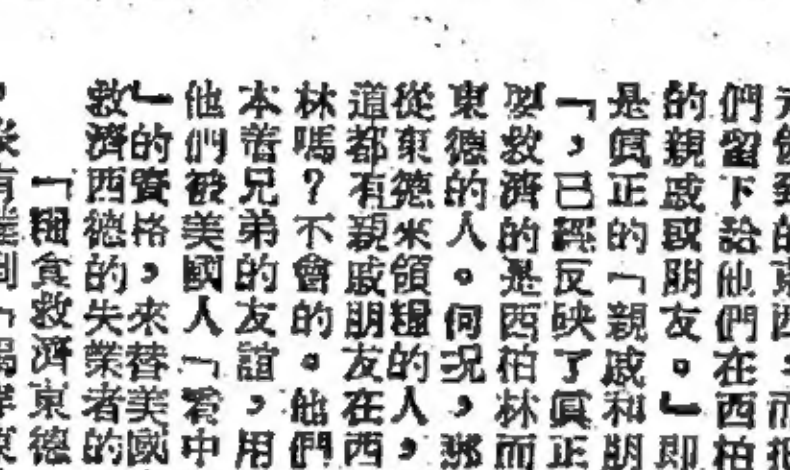 們留下給他們在西柏
的親戚或朋友。」即
是眞正的「親戚和朋
「,已經反映了眞正
要救濟的是西柏林而
東德的人。何況,那
從東德來領糧的人,
道都有親戚朋友在西
林嗎?不會的。他們
本着兄弟的友誼,用
他們被美國人「看中
」的資格,來替美國
救濟西德的失業者的
「糧食救濟東德